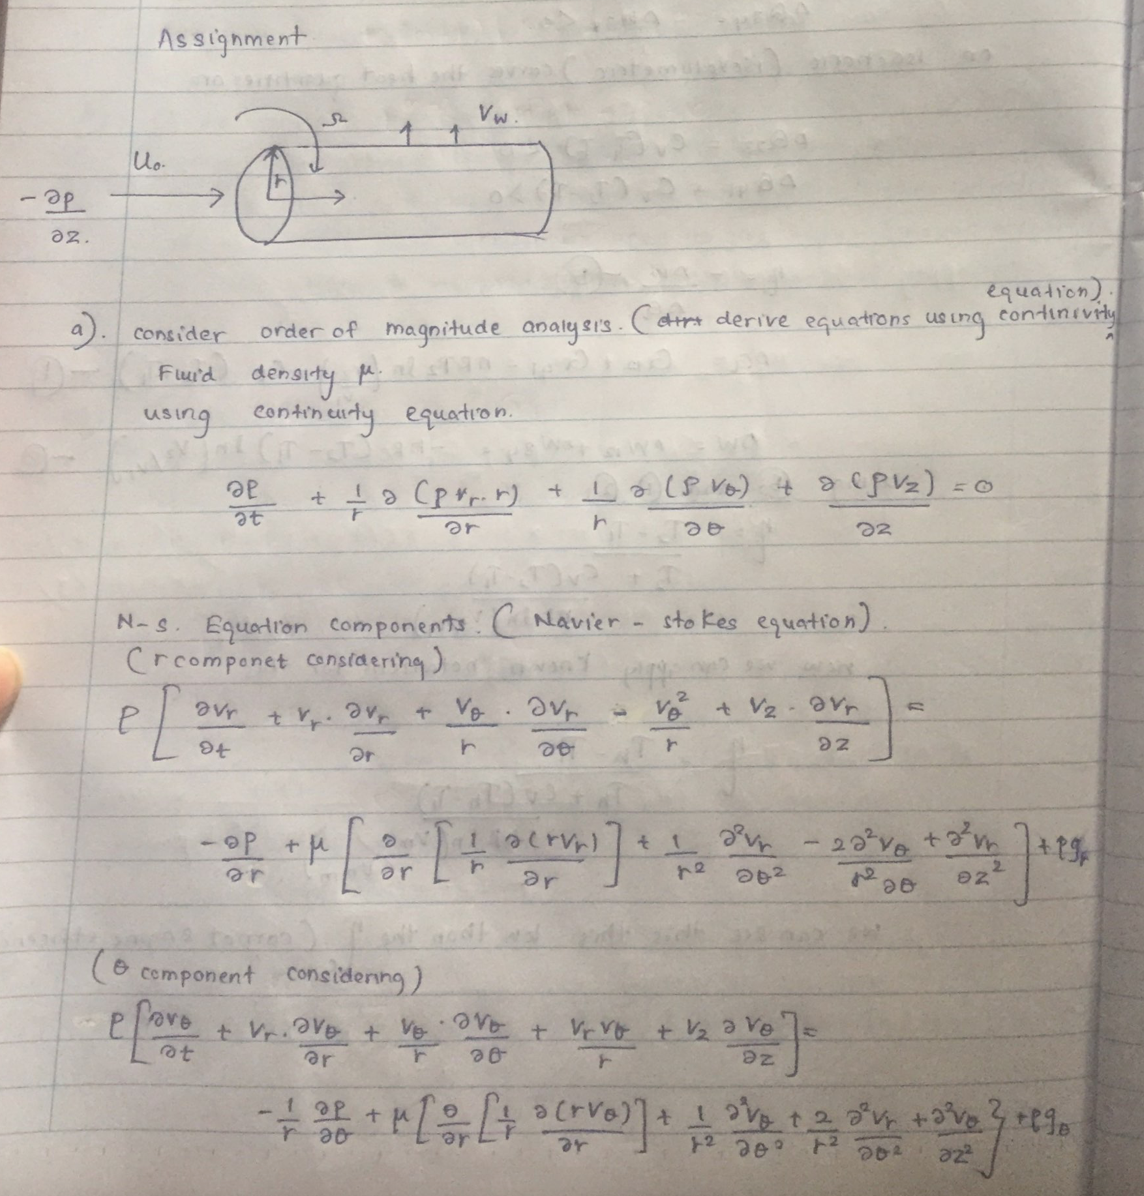 Assignment
Ω
Vw.
U₀.
r
-∂p/∂z.
equation).
a). consider order of magnitude analysis. ( derive equations using continuity
Fluid density μ.
using continuity equation.
∂ρ/∂t + 1/r ∂(ρvr.r)/∂r + 1/r ∂(ρvθ)/∂θ + ∂(ρvz)/∂z = 0
N-S. Equation components. (Navier - stokes equation).
(r componet considering)
ρ[∂vr/∂t + vr.∂vr/∂r + vθ/r . ∂vr/∂θ - vθ²/r + vz . ∂vr/∂z] =
-∂p/∂r + μ[∂/∂r [1/r ∂(rvr)/∂r] + 1/r² ∂²vr/∂θ² - 2∂²vθ/r²∂θ + ∂²vr/∂z²] + ρgr
(θ component considering)
ρ[∂vθ/∂t + vr.∂vθ/∂r + vθ/r . ∂vθ/∂θ + vrvθ/r + vz ∂vθ/∂z] =
-1/r ∂p/∂θ + μ[∂/∂r [1/r ∂(rvθ)/∂r] + 1/r² ∂²vθ/∂θ² + 2/r² ∂²vr/∂θ² + ∂²vθ/∂z²} + ρgθ